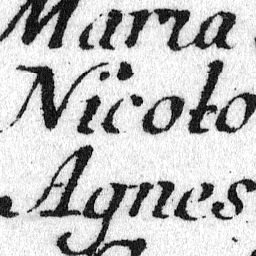 Maria
Nicolo
Agnes